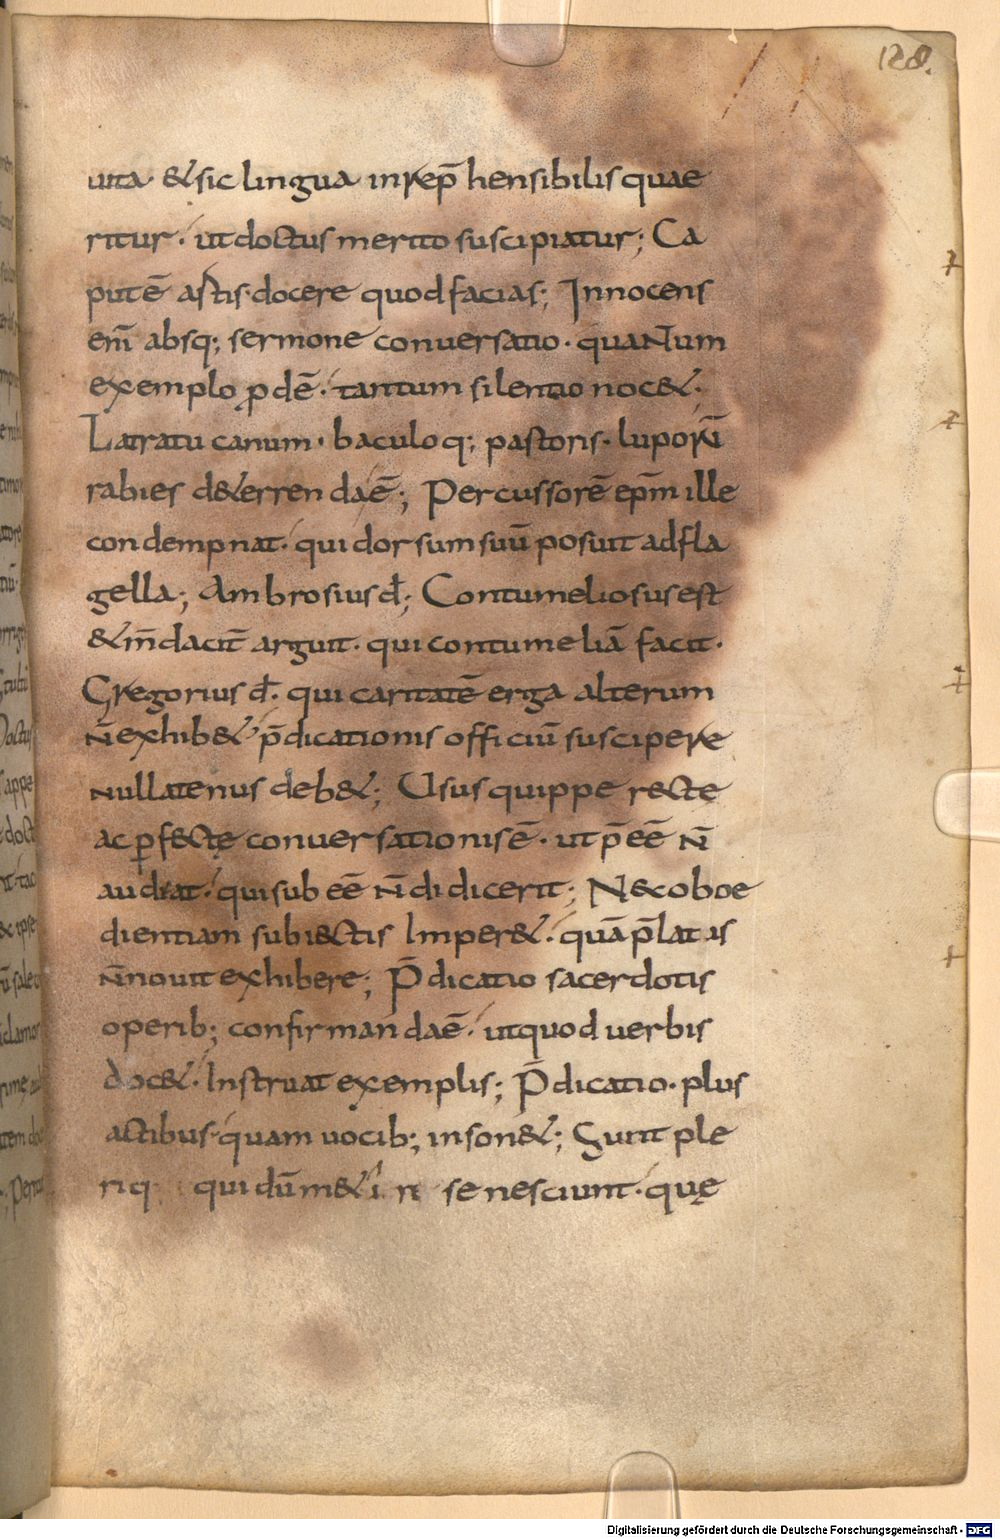 128.
uita· & sic lingua inrep̄hensibilis quae
ritur· ut doctus merito suscipiatur; Ca
put ē astis docere quod facias; Innocens
eni̅ absq; sermone conuersatio· quantum
exemplo ꝓdē· tantum silentio noc&·
Latratu canum· baculoq; pastoris· luporū
rabies d&errenda ē; Percussorē ep̄m ille
condempnat· qui dorsum suū posuit ad fla
gella; Ambrosius d̄; Contumeliosus est
& m̄dacit̄ arguit· qui contumeliā facit·
Gregorius d̄· qui caritatē erga alterum
n̄ exhib& p̄dicationis officiū suscipere
nullatenus deb&; Usus quippe recte
ac ꝑfectę conuersationis ē· ut p̄eē n̄
audeat· qui subeē n̄ didicerit; Nec oboe
dientiam subiectis imper&· quā p̄latis
n̄ nouit exhibere; P̄dicatio sacerdotis
operib; confirmanda ē· ut quod uerbis
doc&· Instruat exemplis; P̄dicatio· plus
actibus· quam uocib; inson&; Sunt ple
riq qui dū m& se nesciunt· quę
Digitalisierung gefördert durch die Deutsche Forschungsgemeinschaft - DFG